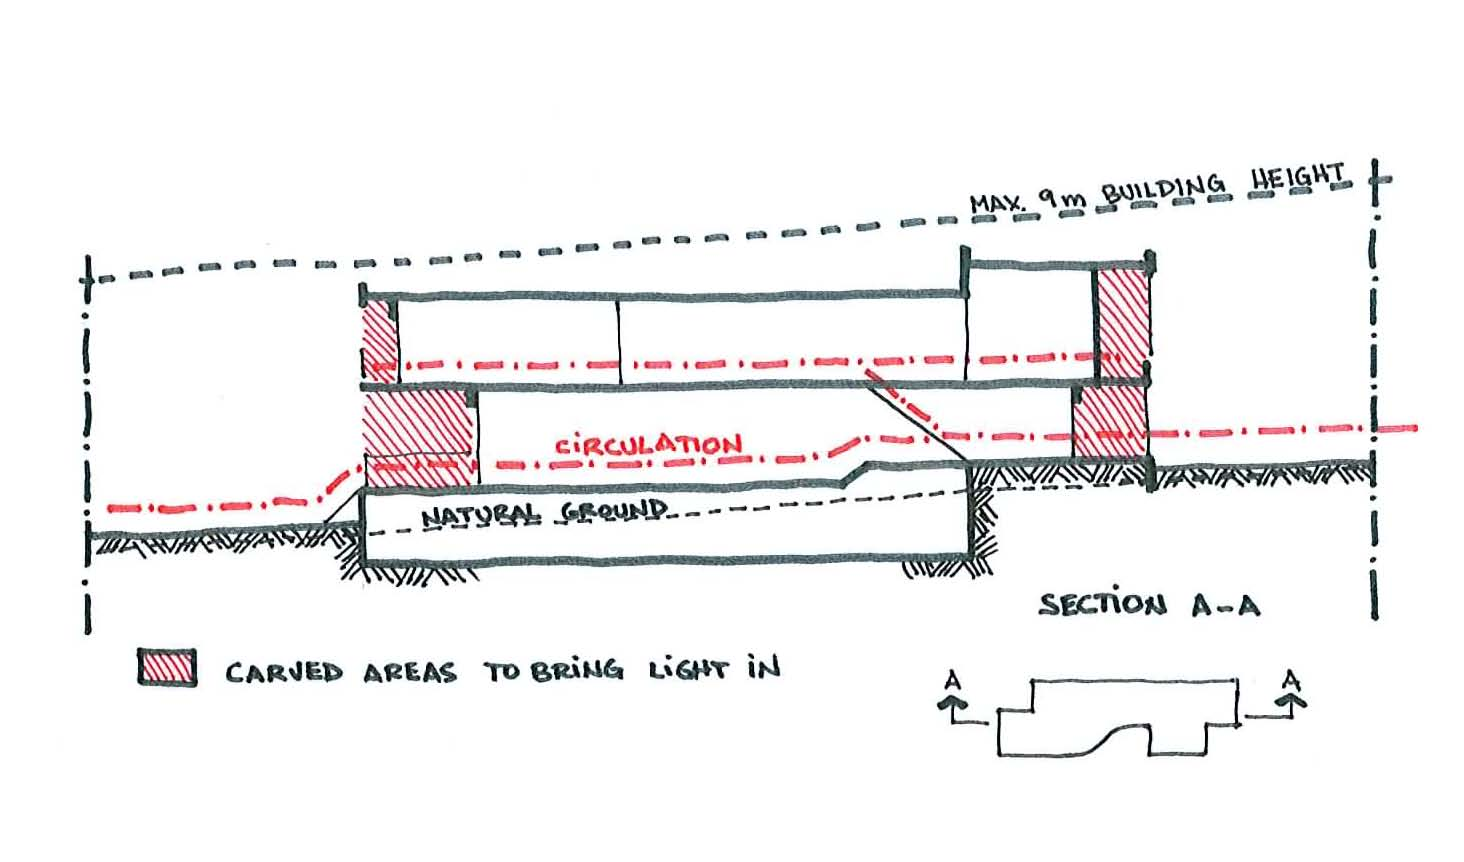 MAX. 9m BUILDING HEIGHT
CiRCULATION
NATURAL GROUND
SECTiON A-A
CARVED AREAS TO BRING LiGHT iN
A
A